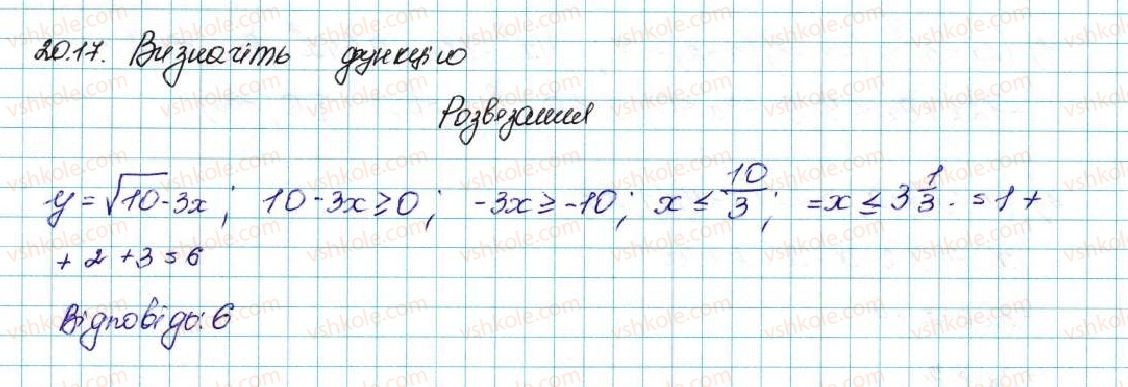 20.17. Визначіть функцію
Розвезання
y = √10-3x; 10-3x≥0; -3x≥-10; x ≤ 10/3; =x ≤ 3 1/3. = 1 +
+ 2 + 3 = 6
Відповідь: 6